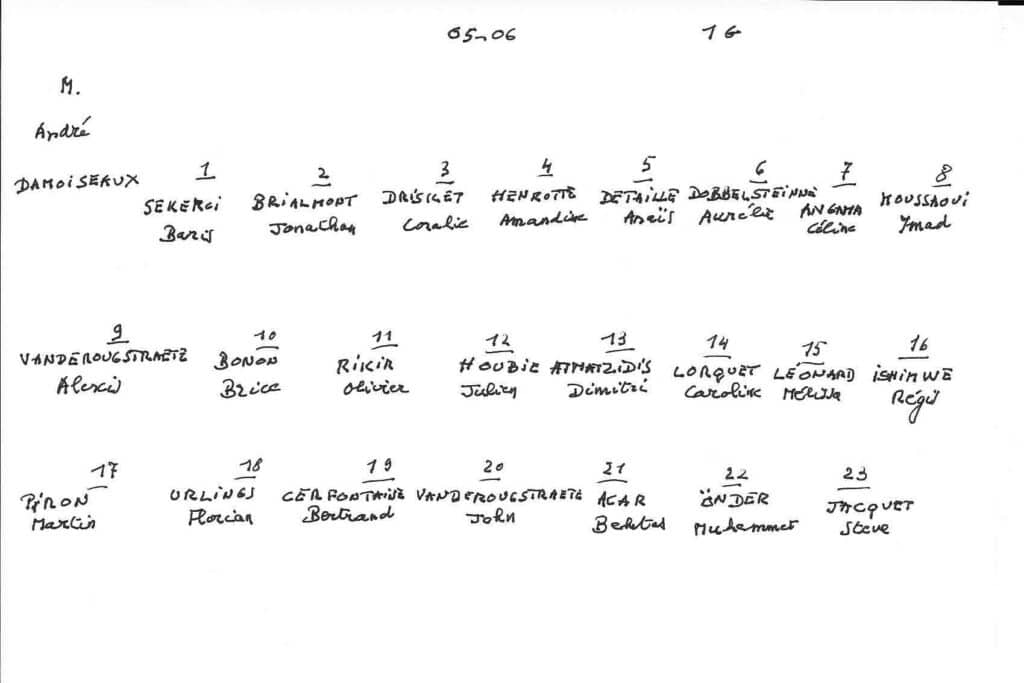 05-06 1G
M.
André
DAMOISEAUX
1 2 3 4 5 6 7 8
SEKERCI BRIALMONT DRISKET HENROTTE DETAILLE DOBBELSTEINNE ANGAMA MOUSSAOUI
Baris Jonathan Coralie Amandine Anaïs Aurélie Céline Ymad
9 10 11 12 13 14 15 16
VANDEROUGSTRAETE BONON RIKIR HOUBIE ATMATZIDIS LORQUET LÉONARD ISHIMWE
Alexis Brice Olivier Julien Dimitri Caroline Mélissa Régis
17 18 19 20 21 22 23
PIRON URLINGS CERFONTAINE VANDEROUGSTRAETE ACAR ÖNDER JACQUET
Martin Florian Bertrand John Bektas Muhammet Steve